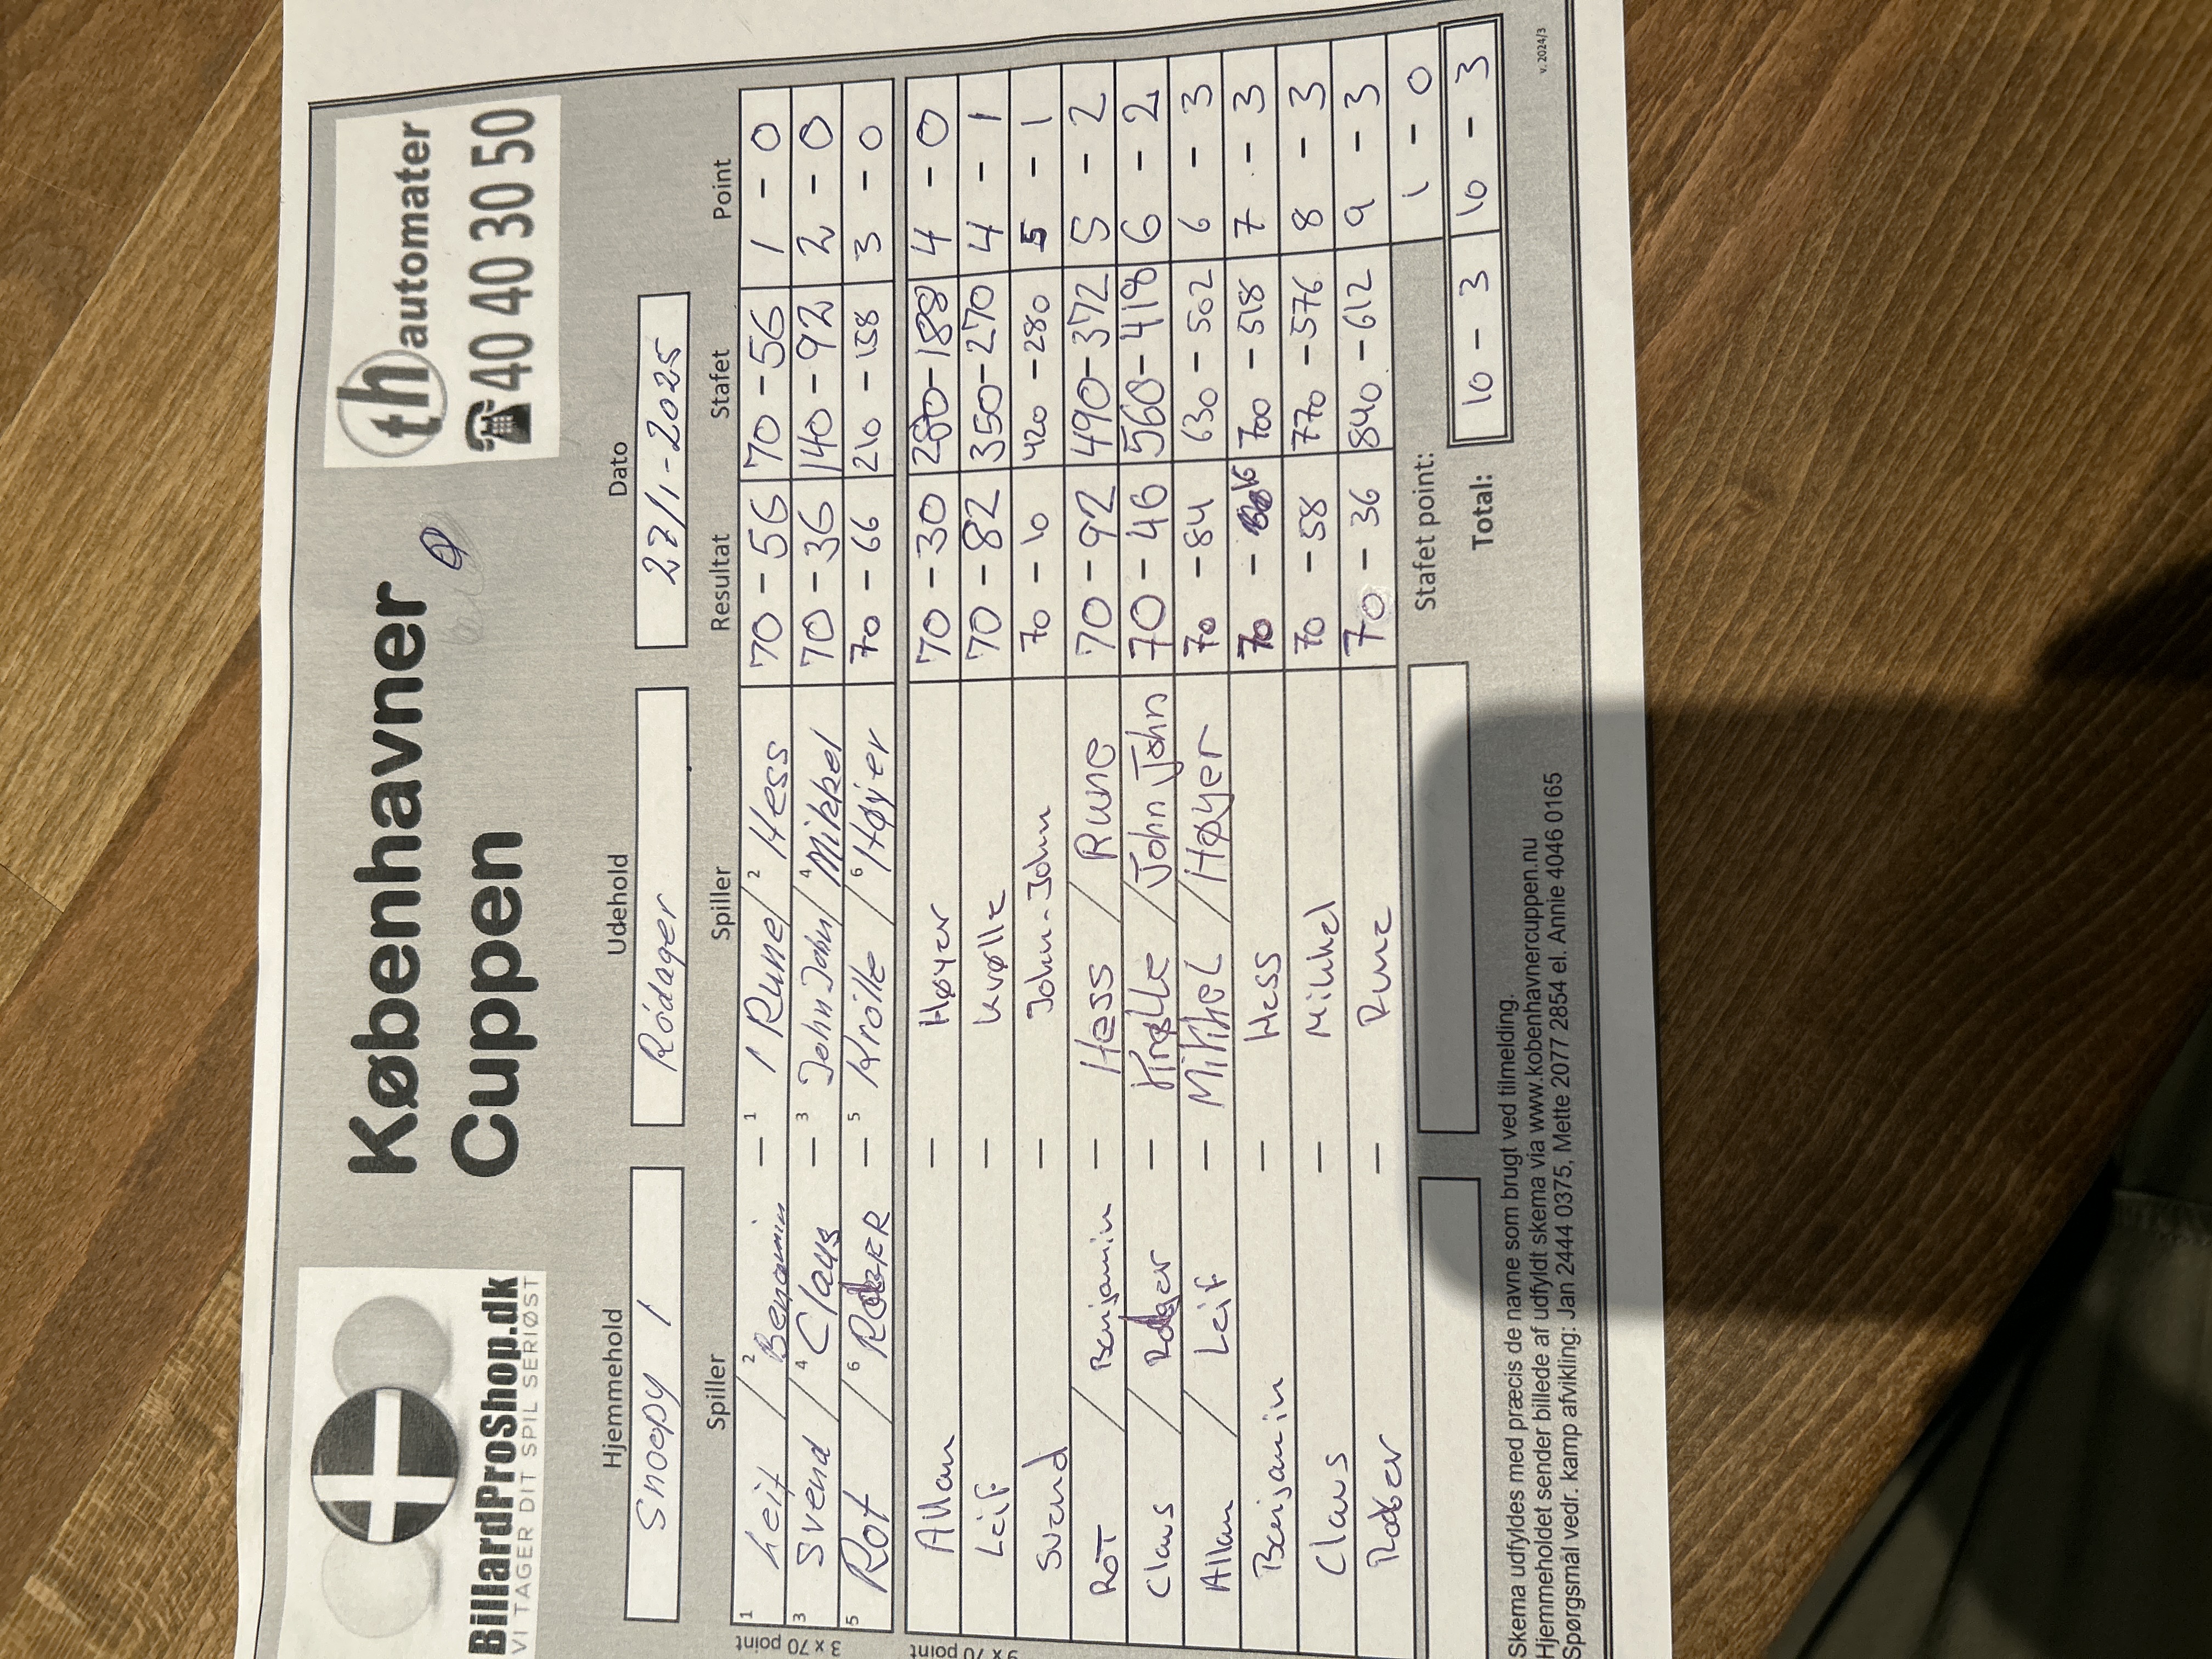 BillardProShop.dk
VI TAGER DIT SPIL SERIØST
Københavner
Cuppen
th automater
☎40 40 30 50
Hjemmehold Udehold Dato
Snoopy 1 Ródager 27/1-2025
Spiller Spiller Resultat Stafet Point
3 x 70 point
1 Leif / 2 Benjamin - 1 Rune / 2 Hess 70-56 70-56 1-0
3 Svend / 4 Claus - 3 John John / 4 Mikkel 70-36 140-92 2-0
5 Rot / 6 RODGER - 5 Krölle / 6 Høyer 70-66 210-158 3-0
9 x 70 point
Allan - Høyer 70-30 280-188 4-0
Leif - Krølle 70-82 350-270 4-1
Svend - John-John 70-10 420-280 5-1
ROT / Benjamin - Hess / Rune 70-92 490-372 5-2
Claus / Rodger - Krølle / John John 70-46 560-418 6-2
Allan / Leif - Mikkel / Høyer 70-84 630-502 6-3
Benjamin - Hess 70-16 700-518 7-3
Claus - Mikkel 70-58 770-576 8-3
Rodger - Rune 70-36 840-612 9-3
Stafet point: 1-0
Total: 10-3 10-3
Skema udfyldes med præcis de navne som brugt ved tilmelding.
Hjemmeholdet sender billede af udfyldt skema via www.kobenhavnercuppen.nu
Spørgsmål vedr. kamp afvikling: Jan 2444 0375, Mette 2077 2854 el. Annie 4046 0165
v. 2024/3